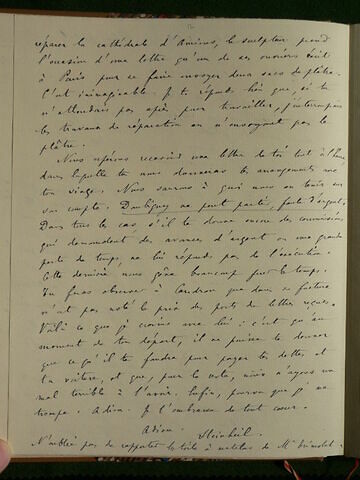 réparer la cathédrale d'Amiens, le sculpteur prend
l'occasion d'une lettre qu'un de ses ouvriers écrit
à Paris pour se faire envoyer deux sacs de plâtre.
C'est inimaginable. Je te réponds bien que, si tu
n'attendais pas après pour travailler, j'interromps
les travaux de réparation en n'envoyant pas le
plâtre.
Nous espérons recevoir une lettre de toi tout à l'heure
dans laquelle tu nous donneras les arrangements pour
ton voyage. Nous saurons à quoi nous en tenir sur
son compte. Daubigny ne peut partir, faute d'argent.
Dans tous les cas, s'il te donne encore des commissions
qui demandent des avances d'argent ou une grande
perte de temps, ne lui réponds pas de l'exécution.
Cette dernière nous gêna beaucoup pour le temps.
Tu feras observer à que dans sa facture
n'est pas noté le prix des ports de lettre reçues.
Voilà ce que je crains avec lui : c'est qu'au
moment de ton départ, il ne puisse te donner
que ce qu'il te faudra pour payer tes dettes et
ta voiture, et que, pour le reste, nous n'ayons un
mal terrible à l'avoir. Enfin, pourvu que je me
trompe. Adieu. Je t'embrasse de tout cœur.
Adieu Steinheil.
N'oublie pas de rapporter la toile à matelas de Mr